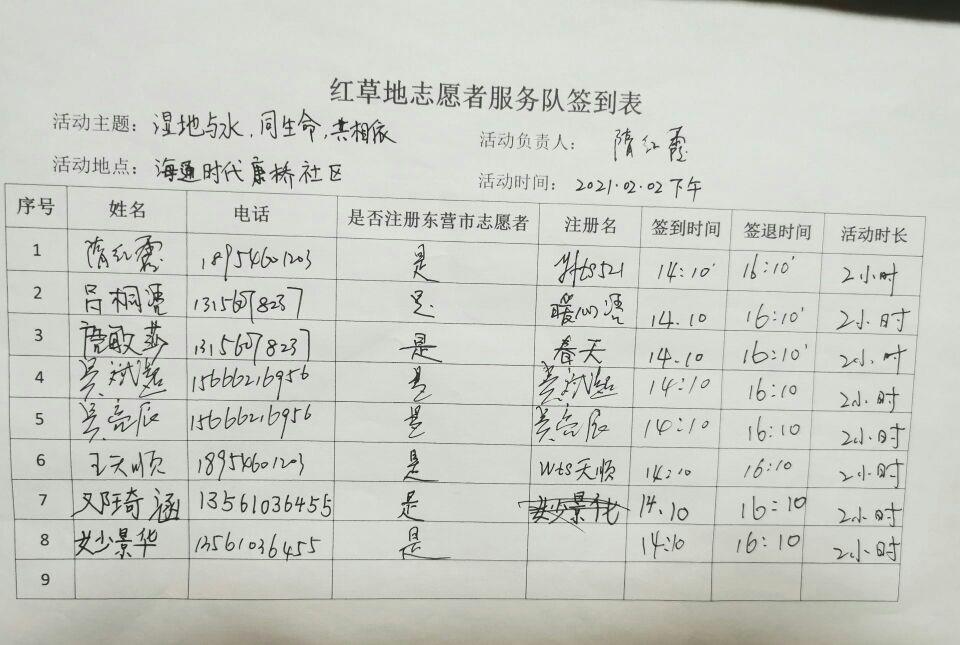 红草地志愿者服务队签到表
活动主题：湿地与水，同生命，共相依 活动负责人： 隋红霞
活动地点：海通时代康桥社区 活动时间：2021.02.02下午
序号 姓名 电话 是否注册东营市志愿者 注册名 签到时间 签退时间 活动时长
1 隋红霞 18954601203 是 14:10 16:10 2小时
2 吕桐 13156078237 是 14.10 16:10 2小时
3 唐敏莎 13156078237 是 春天 14.10 16:10 2小时
4 吴斌超 15666216956 是 吴斌超 14:10 16:10 2小时
5 吴亮辰 15666216956 是 吴亮辰 14:10 16:10 2小时
6 王天顺 18954601203 是 wts天顺 14:10 16:10 2小时
7 邓琦涵 13561036455 是 14.10 16:10 2小时
8 景华 13561036455 是 14:10 16:10 2小时
9